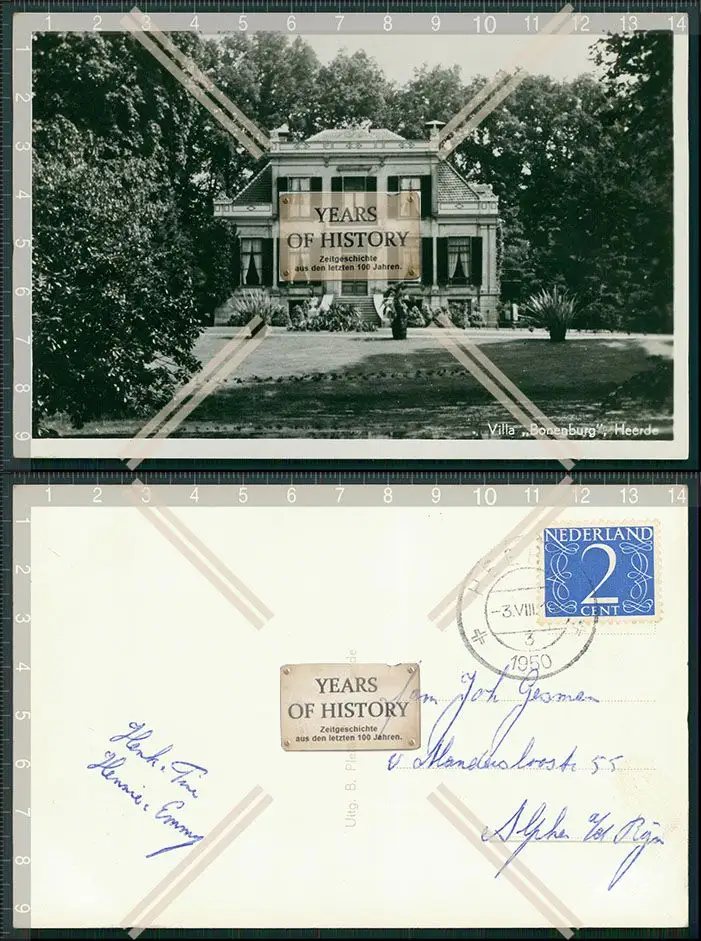 1 2 3 4 5 6 7 8 9 10 11 12 13 14
2
3
4
5
6
7
8
9
YEARS
OF HISTORY
Zeitgeschichte
aus den letzten 100 Jahren.
Villa „Bonenburg", Heerde
1 2 3 4 5 6 7 8 9 10 11 12 13 14
2
3
4
5
6
7
8
9
NEDERLAND
2
CENT
-3.VIII.1
3
1950
YEARS
OF HISTORY
Zeitgeschichte
aus den letzten 100 Jahren.
Fam Joh Gesman
v Mandersloostr 55
Alphen a/d Rijn
Henk + Tine
Hennie + Emmy
Uitg. B.